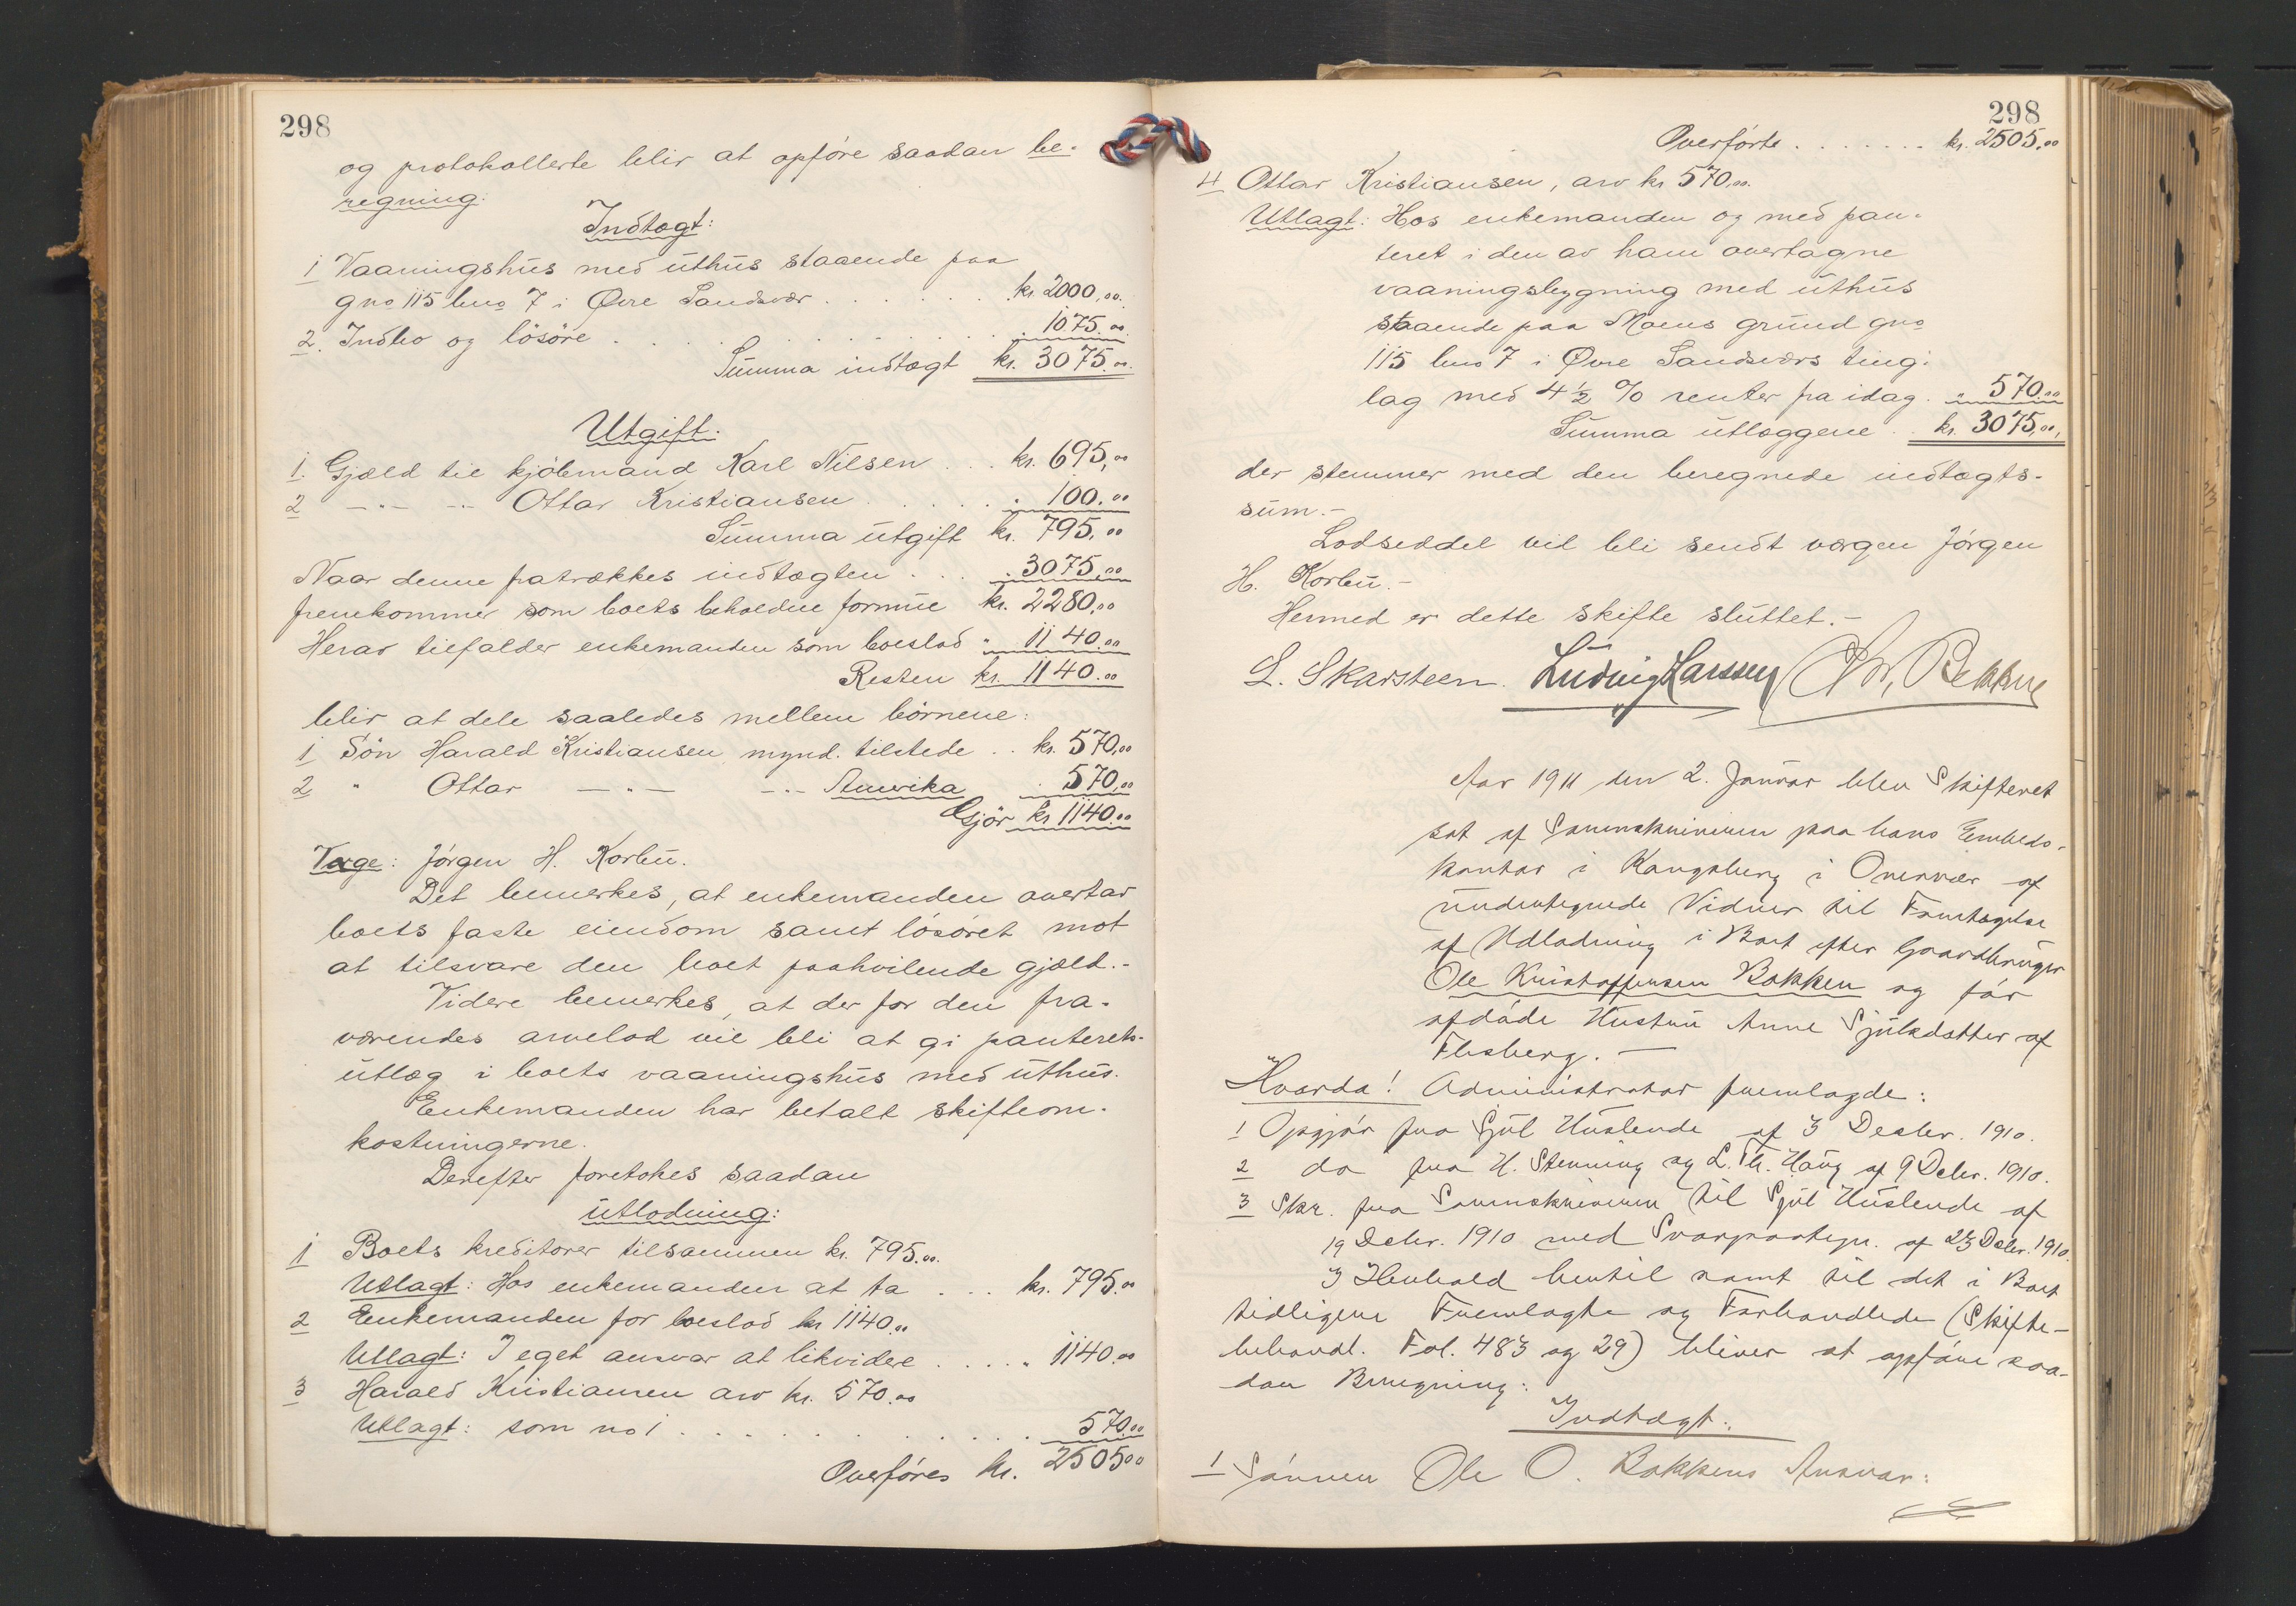 298
og protokollerte blir at opføre saadan be-
regning:
Indtægt:
1 Vaaningshus med uthus staaende paa
gno 115 bno 7 i Øvre Sandsvær . . . . . . kr. 2000,00.
2. Indbo og løsøre . . . . . . . . " 1075.00
Summa indtægt kr. 3075.00.
Utgift:
1. Gjæld til kjøbmand Karl Nilsen . . . kr. 695,00
2 -"- -"- Ottar Kristiansen . . . . . " 100.00
Summa utgift kr. 795,00
Naar denne fratrækkes indtægten . . . " 3075,00
fremkommer som boets beholdne formue kr. 2280,00
Herav tilfalder enkemanden som boeslod " 1140.00
Resten kr. 1140.00
blir at dele saaledes mellem børnene:
1 Søn Harald Kristiansen, mynd. tilstede . . kr. 570,00
2 " Ottar -"- -"- Amerika . 570,00
Gjør kr 1140.00
Værge: Jørgen H. Korbu.
Det bemerkes, at enkemanden overtar
boets faste eiendom samt løsøret mot
at tilsvare den boet paahvilende gjæld.-
Videre bemerkes, at der for den fra-
værendes arvelod vil bli at gi panterets-
utlæg i boets vaaningshus med uthus.
Enkemanden har betalt skifteom-
kostningerne.
Derefter foretokes saadan
utlodning:
1 Boets kreditorer tilsammen kr. 795.00.
Utlagt: Hos enkemanden at ta . . . kr. 795.00
2 Enkemanden for boeslod kr 1140.00
Utlagt: I eget ansvar at likvidere . . . . " 1140.00
3 Harald Kristiansen arv kr. 570.00
Utlagt: som no 1 . . . . . . . . . 570.00
Overføres kr. 2505.00
298
Overførte . . . . . . . kr. 2505.00
4 Ottar Kristiansen, arv kr 570,00.
Utlagt: Hos enkemanden og med pan-
teret i den av ham overtagne
vaaningsbygning med uthus
staaende paa Moens grund gno
115 bno 7 i Øvre Sandsværs ting-
lag med 4 ½ % renter fra idag . " 570.00
Summa utlæggene . . kr. 3075,00,
der stemmer med den beregnede indtægts-
sum.-
Lodseddel vil bli sendt værgen Jørgen
H. Korbu.-
Hermed er dette skifte sluttet.-
L. Skarsteen. Ludvig Larssen Chr. Bekkne
Aar 1911 den 2. Januar blev Skifteret
sat af Sorenskriveren paa hans Embeds-
kontor i Kongsberg i Overvær af
undertegnede Vidner til Foretagelse
af Udlodning i Boet efter Gaardbruger
Ole Kristoffersen Bakken og før
afdøde Hustru Anne Sjulsdatter af
Flesberg. —
Hvorda! Administrator fremlagde:
1 Opgjør fra Sjul Huslende af 3 Decbr. 1910.
2 do fra H. Stenning og L. Th. Haug af 9 Decbr. 1910.
3 Skr. fra Sorenskriveren til Sjul Huslende af
19 Decbr. 1910 med Svarpaategn. af 23 Decbr. 1910.
I Henhold hertil samt til det i Boet
tidligere Fremlagte og Forhandlede (Skifte-
behandl. Fol. 483 og 29) bliver at opføre saa-
dan Beregning:
Indtægt:
1 Sønnen Ole O. Bakkens Ansvar: